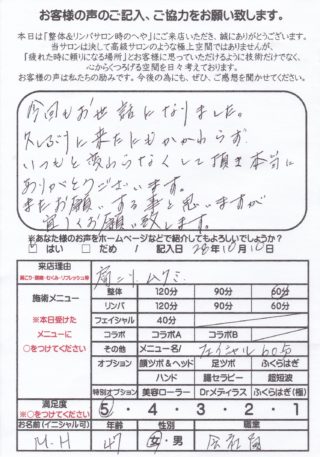 お客様の声のご記入、ご協力をお願い致します。
本日は「整体&リンパサロン時のへや」にご来店いただき、誠にありがとうございます。
当サロンは決して高級サロンのような極上空間ではありませんが、
「疲れた時に頼りになる場所」とお客様に思っていただけるように技術だけでなく、
心からくつろげる空間を日々考えております。
お客様の声は私たちの励みです。今後の為にも、ぜひ、ご感想を聞かせてください。
今回もお世話になりました。
久しぶりに来たにもかかわらず
いつもと変わらなくして頂き本当に
ありがとうございます。
またお願いする事と思いますが
宜しくお願い致します。
※あなた様のお声をホームページなどで紹介してもよろしいでしょうか?
はい だめ / 記入日 28年10月10日
来店理由
肩こり・腰痛・むくみ・リフレッシュ等
肩こり ムクミ
施術メニュー
※本日受けた
メニューに
○をつけてください
整体 120分 90分 60分
リンパ 120分 90分 60分
フェイシャル 40分
コラボ コラボA コラボB
その他 メニュー名/ フェイシャル60分
オプション 顔ツボ&ヘッド 足ツボ ふくらはぎ
ハンド 腸セラピー 超短波
特別オプション 美容ローラー Drメディラス ふくらはぎ(極)
満足度
※○をつけてください
5・4・3・2・1
お名前(イニシャル可) 年齢 性別 職業
M.H 47 女・男 会社員